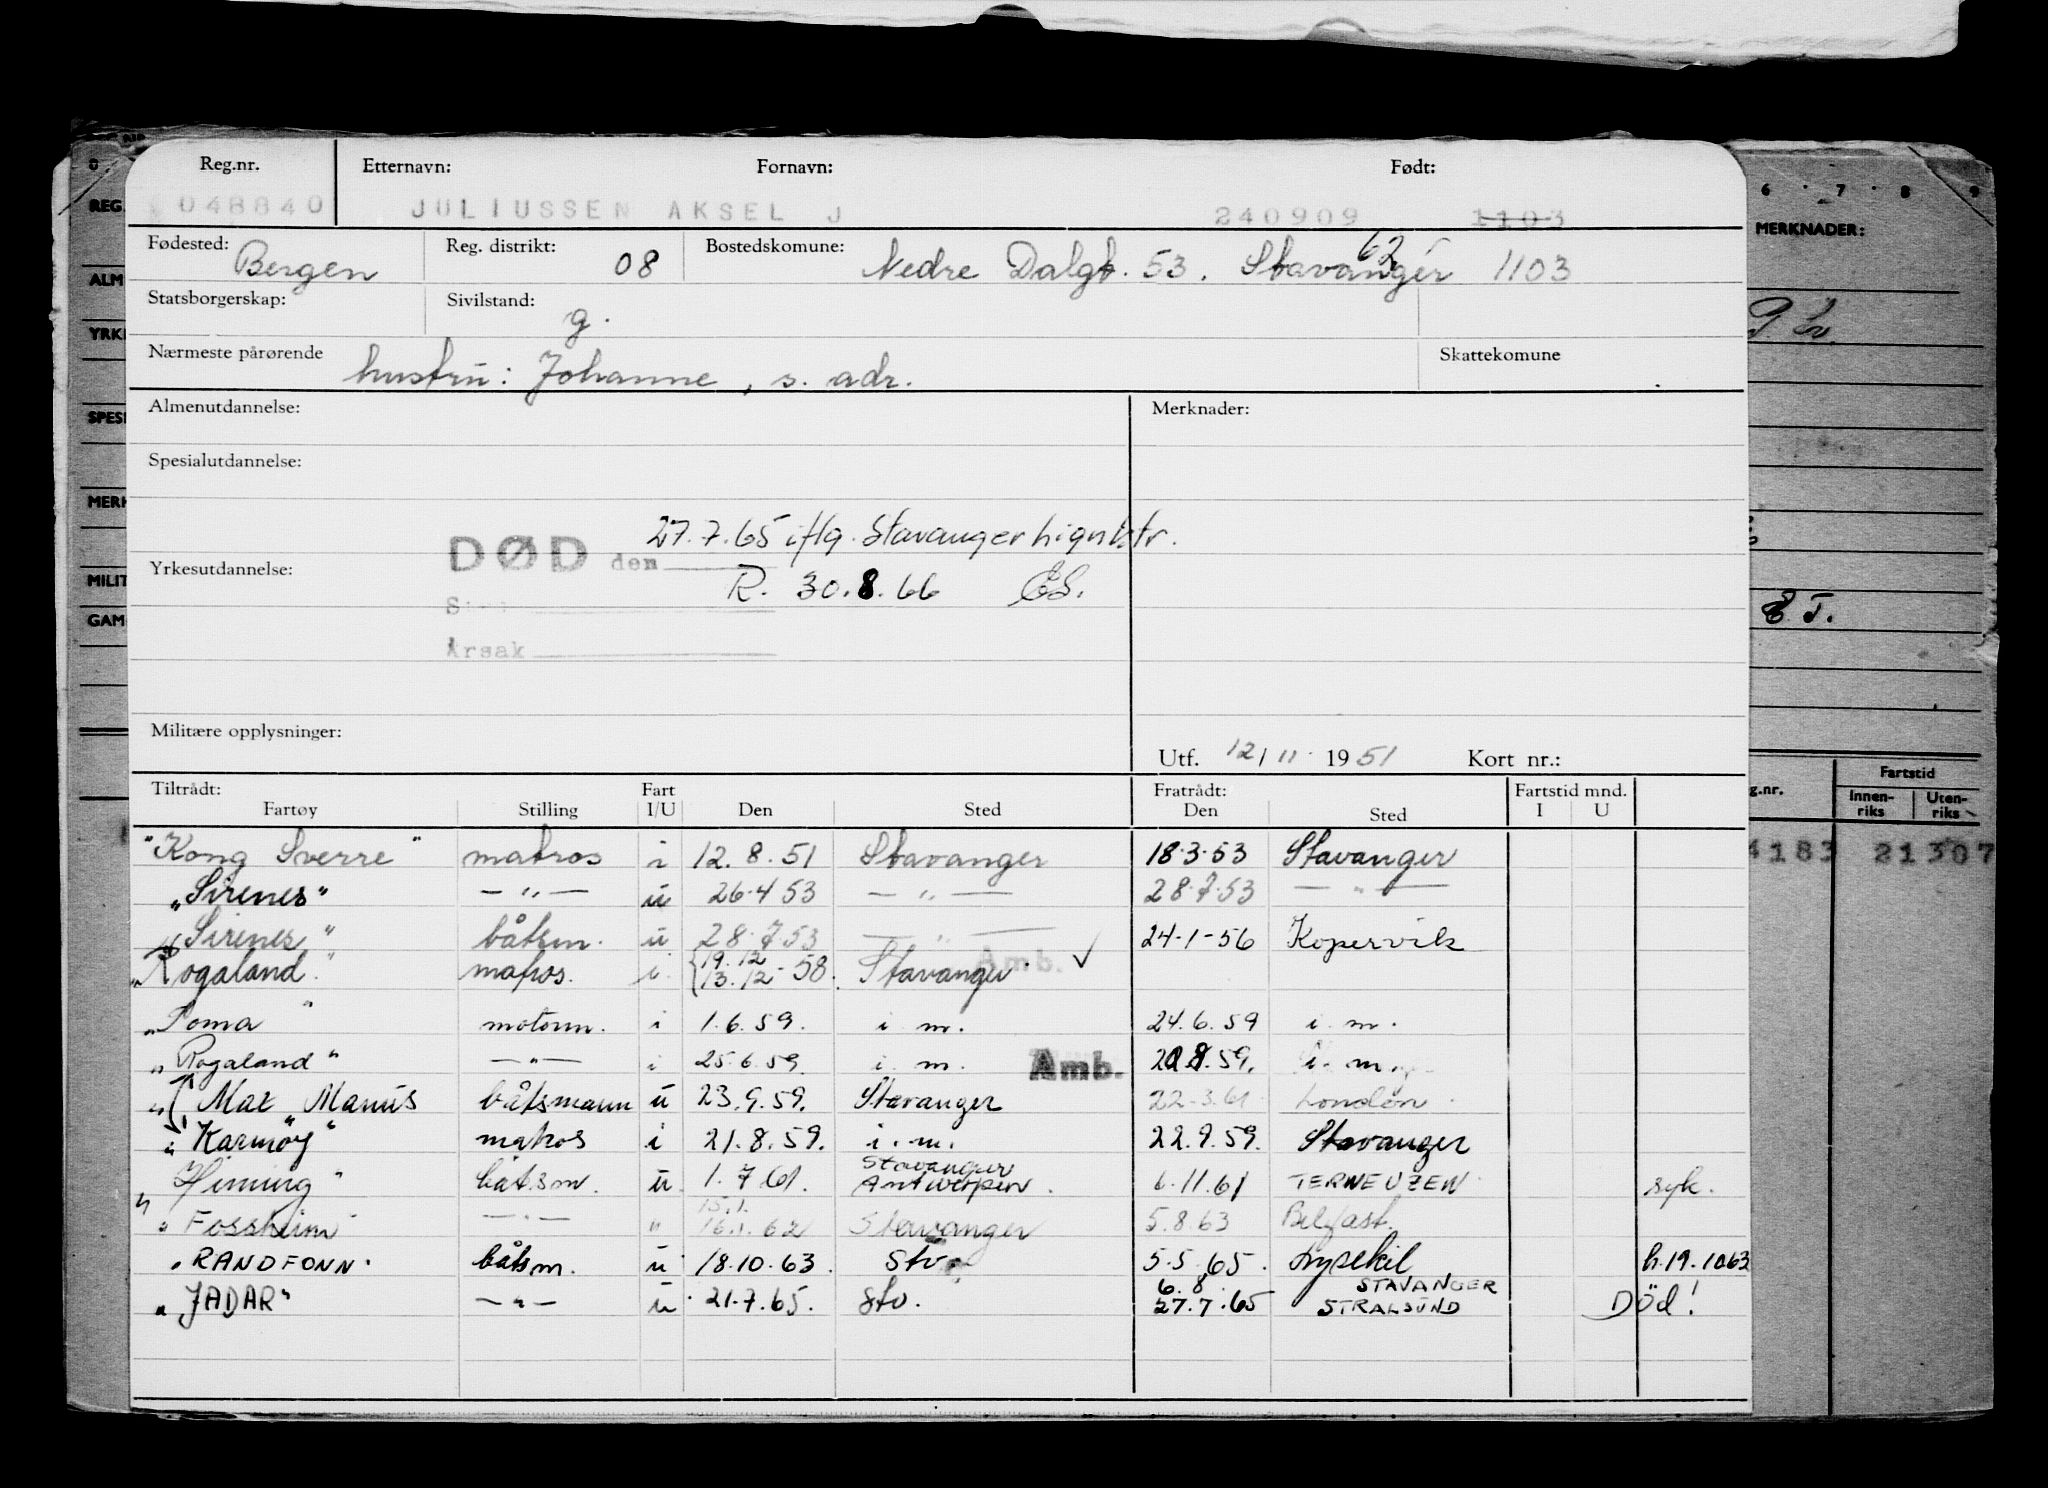 Reg.nr. Etternavn: Fornavn: Født:
048840 JULIUSSEN AKSEL J 240909 1103
Fødested: Bergen Reg. distrikt: 08 Bostedskomune: Nedre Dalgt. 53. 62 Stavanger 1103
Statsborgerskap: Sivilstand: g.
Nærmeste pårørende hustru: Johanne, s. adr. Skattekomune
Almenutdannelse: Merknader:
Spesialutdannelse:
DØD den 27.7.65 iflg. Stavanger lignktr.
Yrkesutdannelse: R. 30.8.66
Årsak
Militære opplysninger:
Utf. 12/11 1951 Kort nr.:
Tiltrådt: Fart Fratrådt: Fartstid mnd.
Fartøy Stilling I/U Den Sted Den Sted I U
"Kong Sverre" matros i 12.8.51 Stavanger 18.3.53 Stavanger
"Sirenes" —"— u 26.4 53 —"— 28.7.53 —"—
"Sirenes" båtsm. u 28.7.53 —"— 24-1-56 Kopervik
"Rogaland" matros. i {19.12 13.12-58. Stavanger Amb. ✓
"Toma" motorm. i 1.6.59. i. m. 24.6.59 i. m.
"Rogaland" —"— i 25.6.59. i. m. Amb. 20.8.59. i. m.
"Max Manus båtsmann u 23.9.59. Stavanger 22.3.61 London
"Karmøy" matros i 21.8.59. i. m. 22.9.59. Stavanger
"Heming" båtsm. u. 1.7.61. Stavanger Antwerpen. 6.11.61 TERNEUZEN syk.
"Fossheim" —"— " 15.1. 16.1.62 Stavanger 5.8.63 Belfast.
"RANDFONN" båtsm. u 18.10.63. Stv. 5.5.65. Lysekil h.19.1063
"JADAR" —"— u 21.7.65. Stv. 6.8 27.7.65 STAVANGER STRALSUND Död!
REG.
ALM
YRK
SPESI
MERK
MILIT
GAM
6 7 8 9
MERKNADER:
E T.
g.nr. Fartstid
Innenriks Utenriks
4183 21307